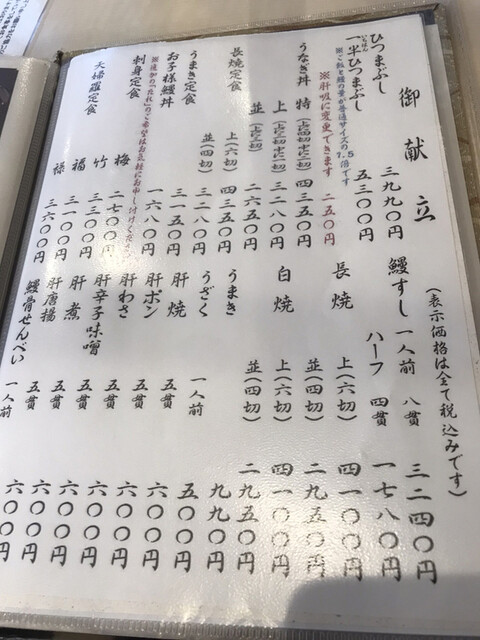 御献立
(表示価格は全て税込みです)
ひつまぶし 三九九〇円
いちはん
一半ひつまぶし 五三〇〇円
※ご飯と鰻の量が普通サイズの1.5倍です
※肝吸に変更できます 二五〇円
うなぎ丼 特 四三五〇円
上 三二八〇円
並 二六五〇円
長焼定食 上(六切) 四三五〇円
並(四切) 三二八〇円
うまき定食 三一五〇円
お子様鰻丼 一六八〇円
※追加の「たれ」のご希望はお気軽にお申し付けください
刺身定食 梅 二七〇〇円
竹 三三〇〇円
天婦羅定食 福 三一〇〇円
禄 三六〇〇円
鰻すし 一人前 八貫 三二四〇円
ハーフ 四貫 一七八〇円
長焼 上(六切) 四一〇〇円
並(四切) 二九五〇円
白焼 上(六切) 四一〇〇円
並(四切) 二九五〇円
うまき 九九〇円
うざく 一人前 五〇〇円
肝焼 五貫 六〇〇円
肝ポン 五貫 六〇〇円
肝わさ 五貫 六〇〇円
肝辛子味噌 五貫 六〇〇円
肝煮 五貫 六〇〇円
肝唐揚 五貫 六〇〇円
鰻骨せんべい 一人前